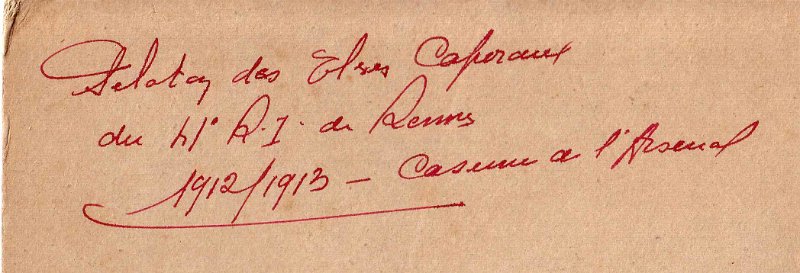 Peloton des Elèves Caporaux
du 41° R.I. de Rennes
1912/1913 - Caserne de l'Arsenal